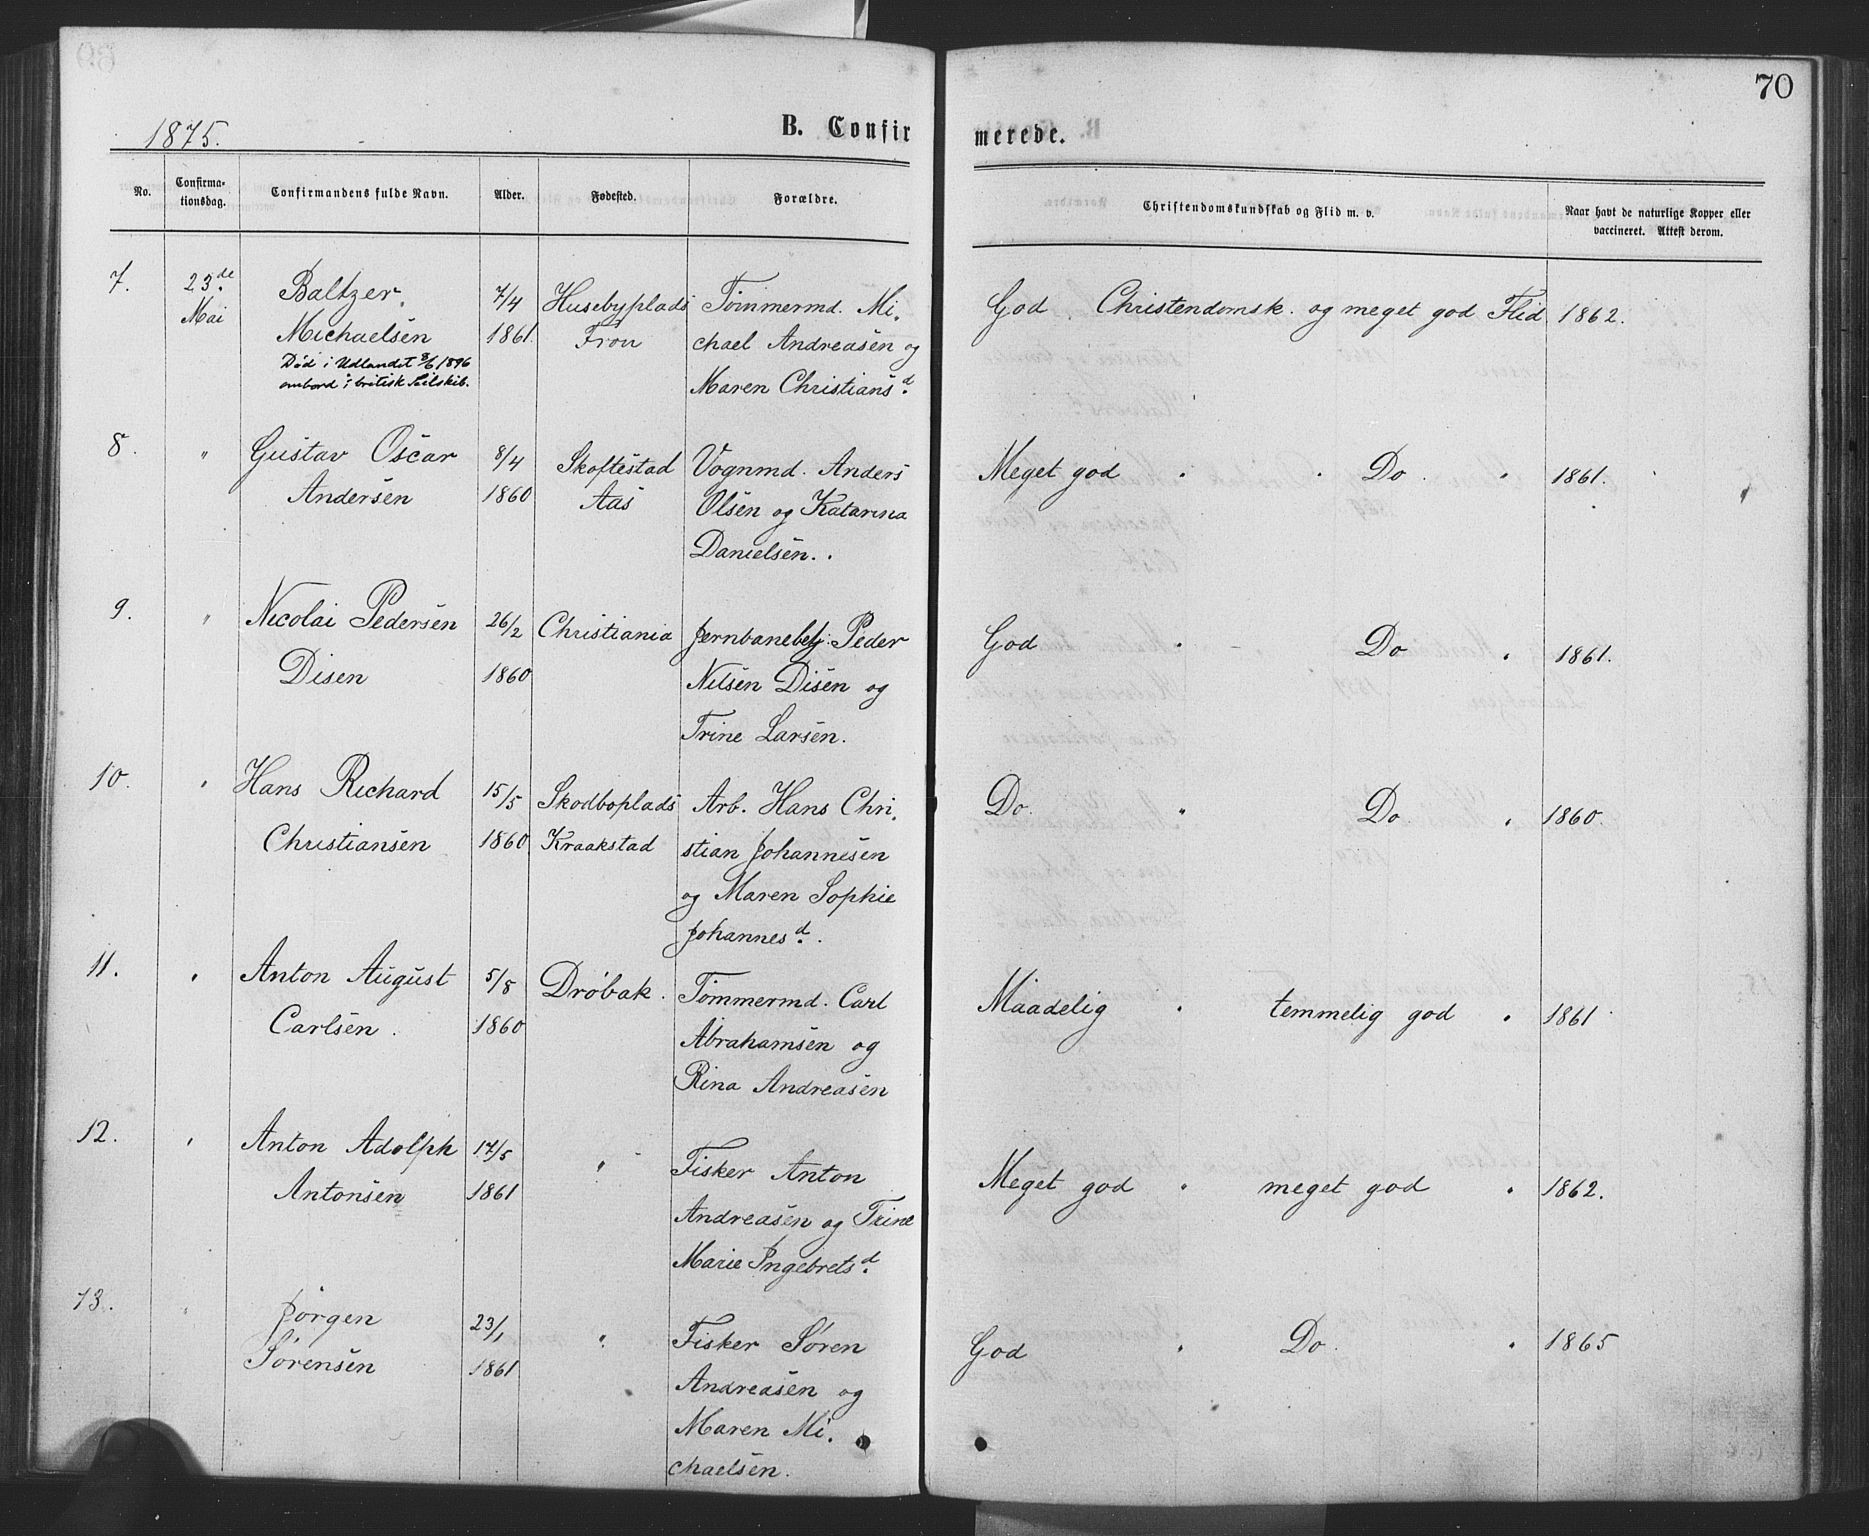 70
1875.
B. Confirmerede.
No.
Confirma-
tionsdag.
Confirmandens fulde Navn.
Alder.
Fødested.
Forældre.
Christendomskundskab og Flid m. v.
Naar havt de naturlige Kopper eller
vaccineret. Attest derom.
7. 23de Baltzer 7/4 Husebyplads Tømmermd. Mi- God Christendomsk. og meget god Flid 1862.
Mai Michaelsen 1861. Fron chael Andreasen og
Død i Udlandet 8/6 1896
ombord i britisk Seilskib. Maren Christiansd.
8. " Gustav Oscar 8/4 Skoftestad Vognmd. Anders Meget god " " Do " 1861.
Andersen 1860 Aas Olsen og Katarina
Danielsen.
9. " Nicolai Pedersen 26/2 Christiania Jernbanebetj. Peder God " " Do " 1861.
Disen 1860 Nilsen Disen og
Trine Larsen.
10. " Hans Richard 15/5 Skodboplads Arb. Hans Chri- Do. " Do " 1860.
Christiansen 1860 Kraakstad stian Johannesen
og Maren Sophie
Johannesd.
11. " Anton August 5/8 Drøbak. Tømmermd. Carl Maadelig " temmelig god " 1861
Carlsen. 1860 Abrahamsen og
Rina Andreasen
12. " Anton Adolph 17/5 " Fisker Anton Meget god " meget god " 1862.
Antonsen 1861 Andreasen og Trine
Marie Ingebretsd.
13. " Jørgen 23/1 " Fisker Søren God " Do. " 1865
Sørensen 1861 Andreasen og
Maren Mi-
chaelsen.